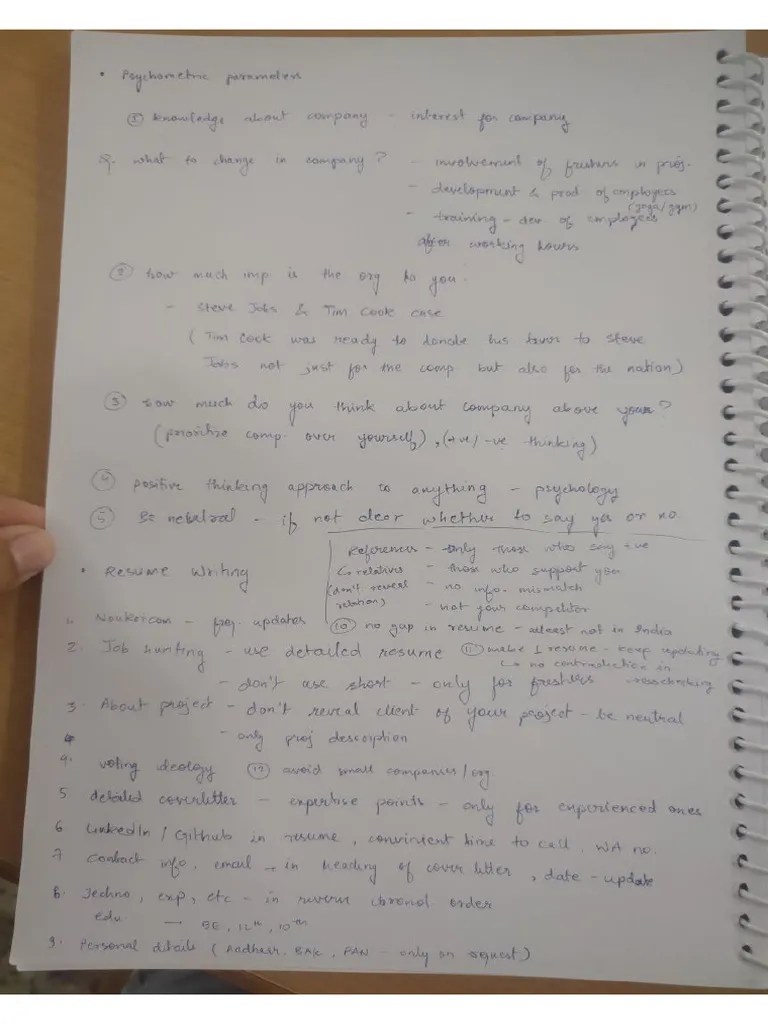 • Psychometric parameters
① knowledge about company - interest for company
Q. what to change in company? - involvement of freshers in proj.
- development & prod of employees
(yoga/gym)
- training - dev of employees
after working hours
② how much imp is the org to you.
- Steve Jobs & Tim Cook case
(Tim Cook was ready to donate his liver to Steve
Jobs not just for the comp but also for the nation)
③ how much do you think about company above your?
(prioritize comp. over yourself), (+ve/-ve thinking)
④ positive thinking approach to anything - psychology
⑤ Be neutral - if not clear whether to say yes or no.
References - only those who say +ve
↳ relatives - those who support you
(don't reveal - no info. mismatch
relation) - not your competitor
• Resume Writing
1. Naukri.com - freq. updates ⑩ no gap in resume - atleast not in India
2. Job hunting - use detailed resume ⑪ make 1 resume - keep updating
↳ no contradiction in
- don't use short - only for freshers crosschecking
3. About project - don't reveal client of your project - be neutral
- only proj description
4. voting ideology ⑫ avoid small companies/org
5 detailed coverletter - expertise points - only for experienced ones
6 LinkedIn / Github in resume, convinient time to call, WA no.
7. contact info, email → in heading of cover letter, date - update
8. Techno, exp, etc - in reverse chronol order
edu — BE, 12th, 10th
9. Personal details (Aadhaar, PAN - only on request)